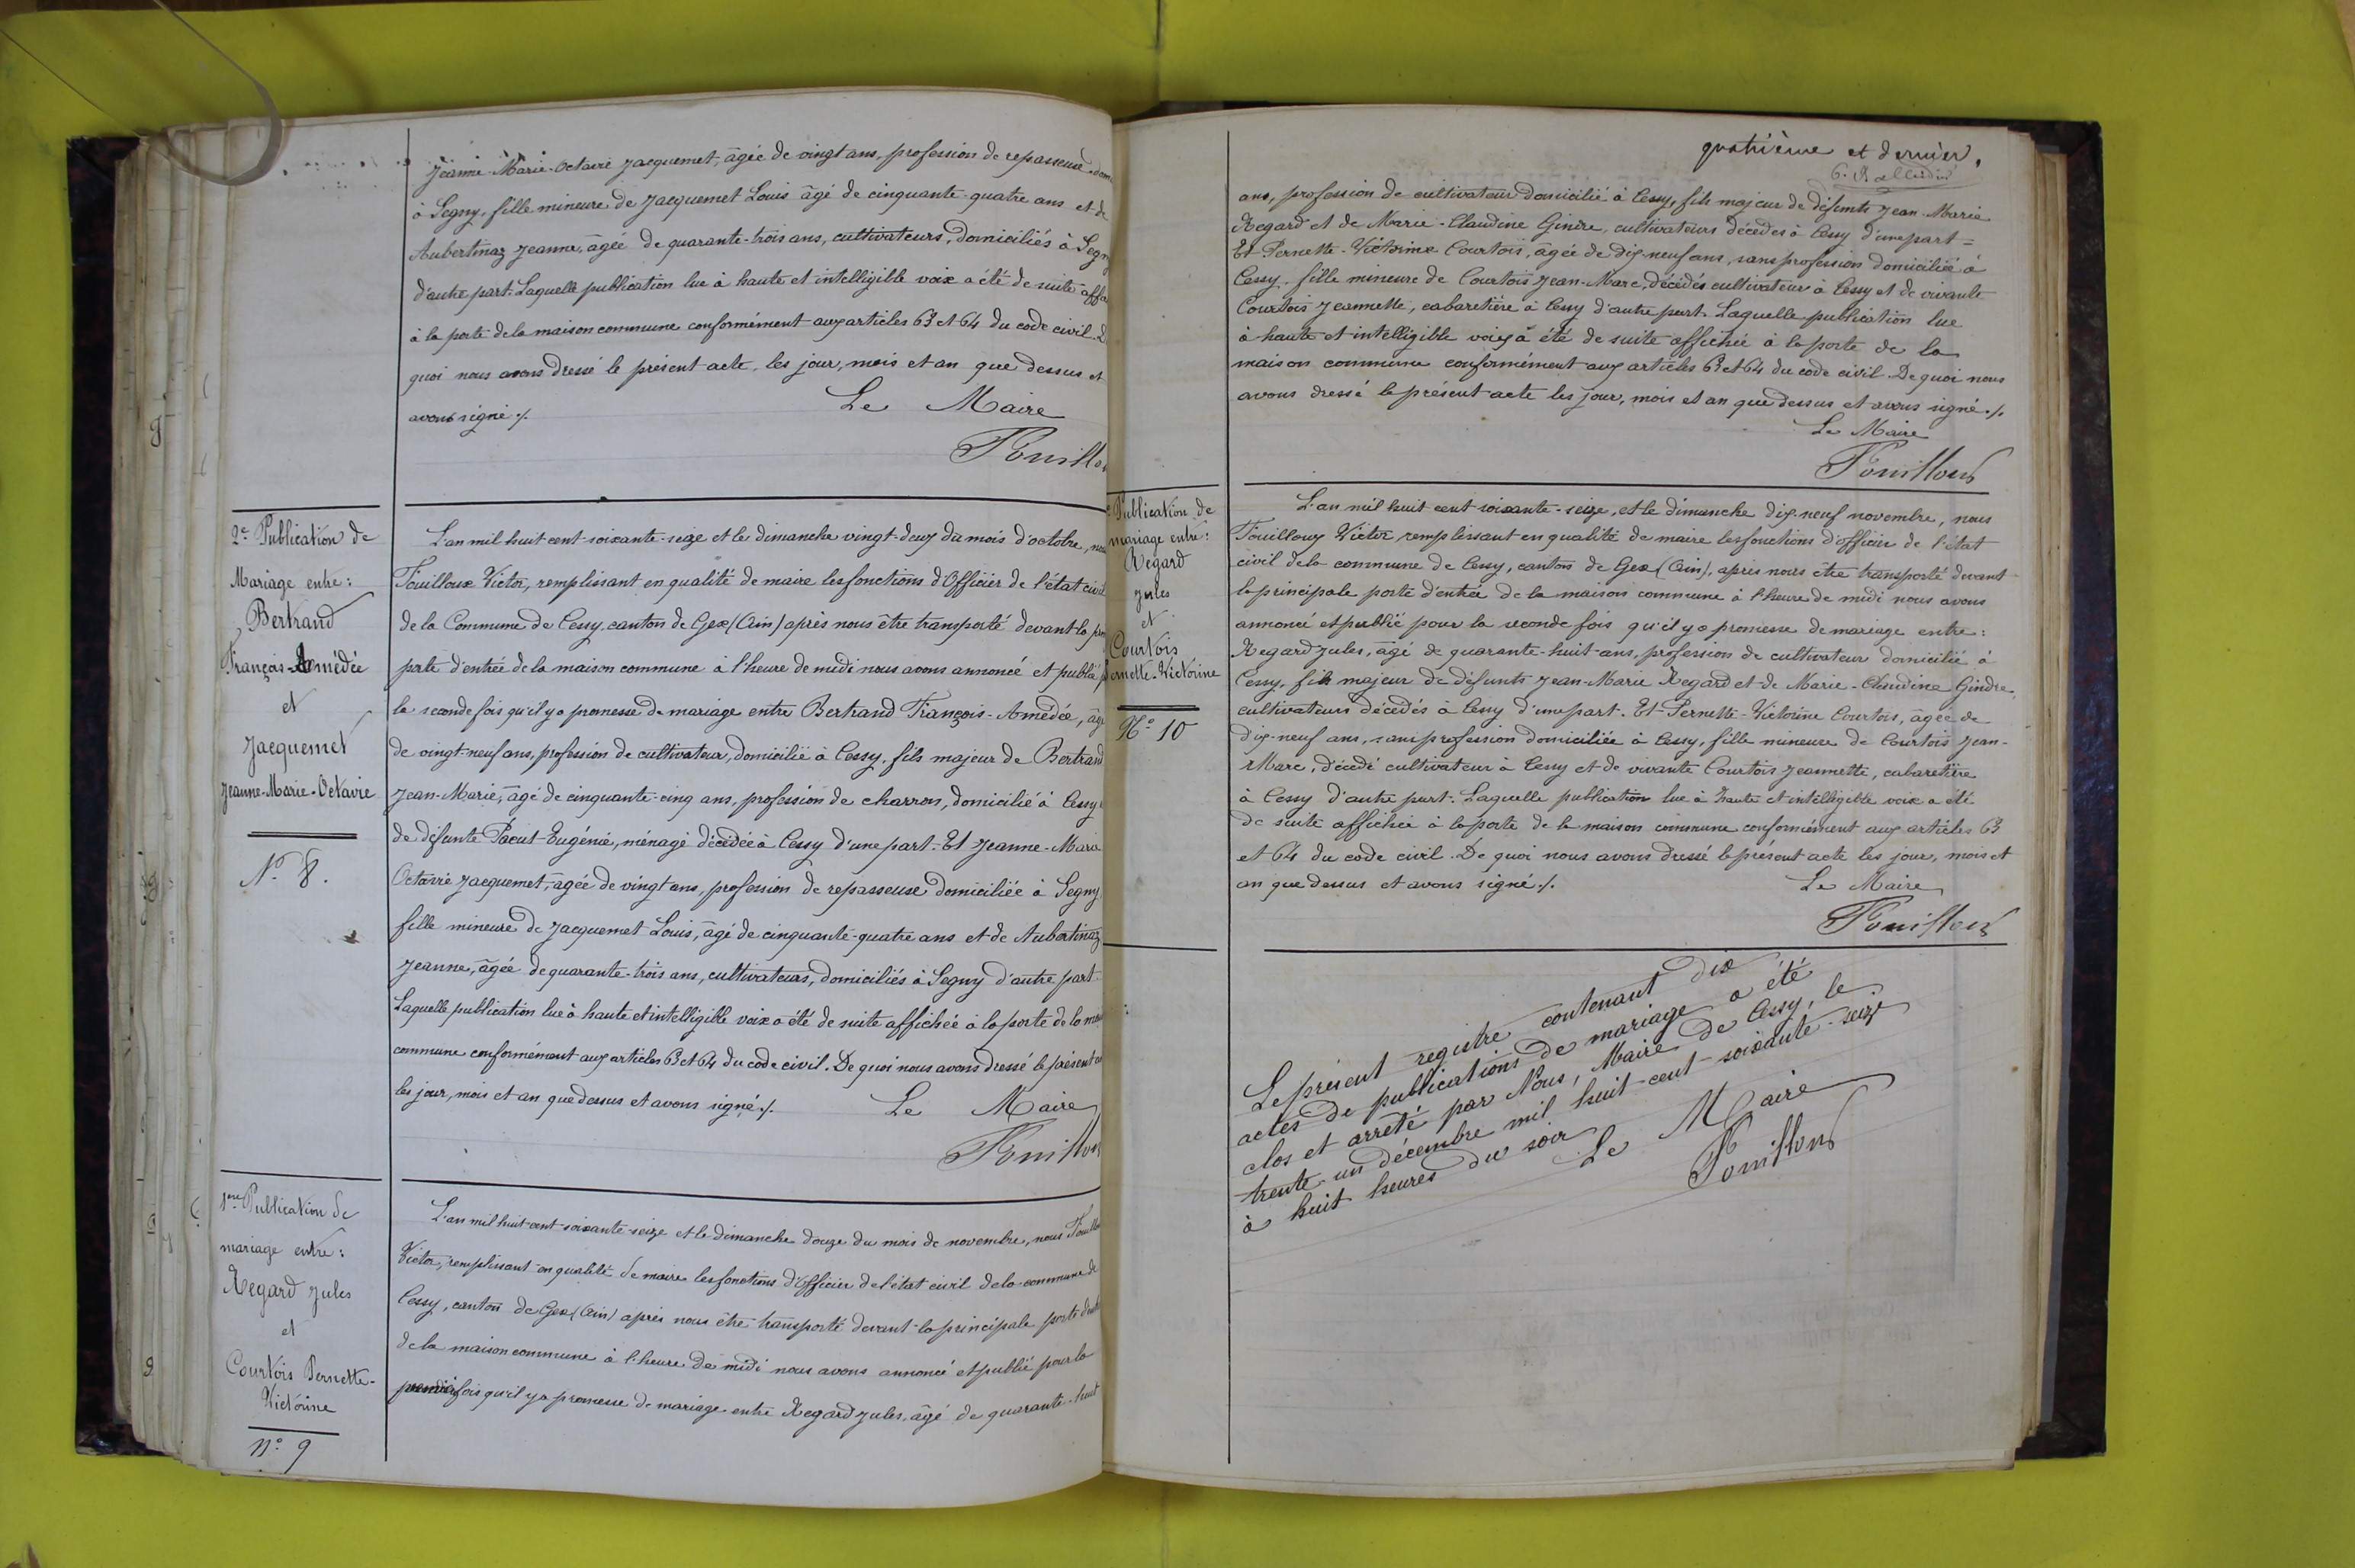 Jeanne-Marie-Octavie Jacquemet, âgée de vingt ans, profession de repasseuse
à Segny, fille mineure de Jacquemet Louis âgé de cinquante-quatre ans et de
Aubertinaz Jeanne, âgée de quarante-trois ans, cultivateurs, domiciliés à Segny
d'autre part. Laquelle publication lue à haute et intelligible voix a été de suite
à la porte de la maison commune conformément aux articles 63 et 64 du code civil.
quoi nous avons dressé le présent acte, les jour, mois et an que dessus et
avons signé ./.
Le Maire
Fouilloux
2e Publication de
Mariage entre :
Bertrand
François-Amédée
et
Jacquemet
Jeanne-Marie-Octavie
No 8.
L'an mil huit cent soixante-seize et le dimanche vingt-deux du mois d'octobre,
Fouilloux Victor, remplissant en qualité de maire les fonctions d'Officier de l'état civil
de la Commune de Cessy, canton de Gex (Ain) après nous être transporté devant la
porte d'entrée de la maison commune à l'heure de midi nous avons annoncé et publié
la seconde fois qu'il y a promesse de mariage entre Bertrand François-Amédée,
de vingt-neuf ans, profession de cultivateur, domicilié à Cessy, fils majeur de Bertrand
Jean-Marie, âgé de cinquante-cinq ans, profession de charron, domicilié à Cessy
de défunte Eugénie, ménagé décédée à Cessy d'une part. Et Jeanne-Marie
Octavie Jacquemet, âgée de vingt ans, profession de repasseuse domiciliée à Segny
fille mineure de Jacquemet Louis, âgé de cinquante-quatre ans et de Aubertinaz
Jeanne, âgée de quarante-trois ans, cultivateurs, domiciliés à Segny d'autre part
Laquelle publication lue à haute et intelligible voix a été de suite affichée à la porte de la
commune conformément aux articles 63 et 64 du code civil. De quoi nous avons dressé le présent
les jour, mois et an que dessus et avons signé ./.
Le Maire
Fouilloux
1ere Publication de
mariage entre :
Regard Jules
et
Courtois Pernette-
Victorine
No 9
L'an mil huit cent soixante-seize et le dimanche douze du mois de novembre, nous
Victor, remplissant en qualité de maire les fonctions d'Officier de l'état civil de la commune de
Cessy, canton de Gex (Ain) après nous être transporté devant la principale porte
de la maison commune à l'heure de midi nous avons annoncé et publié pour la
première fois qu'il y a promesse de mariage entre Regard Jules, âgé de quarante-huit
quatrième et dernier.
ans, profession de cultivateur domicilié à Cessy, fils majeur de défunts Jean-Marie
Regard et de Marie-Claudine Gindre, cultivateurs décédés à Cessy d'une part =
Et Pernette-Victorine Courtois, âgée de dix-neuf ans, sans profession domiciliée à
Cessy, fille mineure de Courtois Jean-Marc, décédés cultivateur à Cessy et de vivante
Courtois Jeannette, cabaretière à Cessy d'autre part. Laquelle publication lue
à haute et intelligible voix a été de suite affichée à la porte de la
maison commune conformément aux articles 63 et 64 du code civil. De quoi nous
avons dressé le présent acte les jour, mois et an que dessus et avons signé ./.
Le Maire
Fouilloux
Publication de
mariage entre :
Regard
Jules
et
Courtois
Pernette-Victorine
No 10
L'an mil huit cent soixante-seize, et le dimanche dix-neuf novembre, nous
Fouilloux Victor remplissant en qualité de maire les fonctions d'officier de l'état
civil de la commune de Cessy, canton de Gex (Ain), après nous être transporté devant
la principale porte d'entrée de la maison commune à l'heure de midi nous avons
annoncé et publié pour la seconde fois qu'il y a promesse de mariage entre :
Regard Jules, âgé de quarante-huit ans, profession de cultivateur domicilié à
Cessy, fils majeur de défunts Jean-Marie Regard et de Marie-Claudine Gindre,
cultivateurs décédés à Cessy d'une part. Et Pernette-Victorine Courtois, âgée de
dix-neuf ans, sans profession domiciliée à Cessy, fille mineure de Courtois Jean-
Marc, décédé cultivateur à Cessy et de vivante Courtois Jeannette, cabaretière
à Cessy d'autre part. Laquelle publication lue à haute et intelligible voix a été
de suite affichée à la porte de la maison commune conformément aux articles 63
et 64 du code civil. De quoi nous avons dressé le présent acte les jour, mois et
an que dessus et avons signé ./.
Le Maire
Fouilloux
Le présent registre contenant dix
actes de publications de mariage a été
clos et arrêté par Nous, Maire de Cessy, le
trente-un décembre mil huit-cent-soixante-seize
à huit heures du soir
Le Maire
Fouilloux